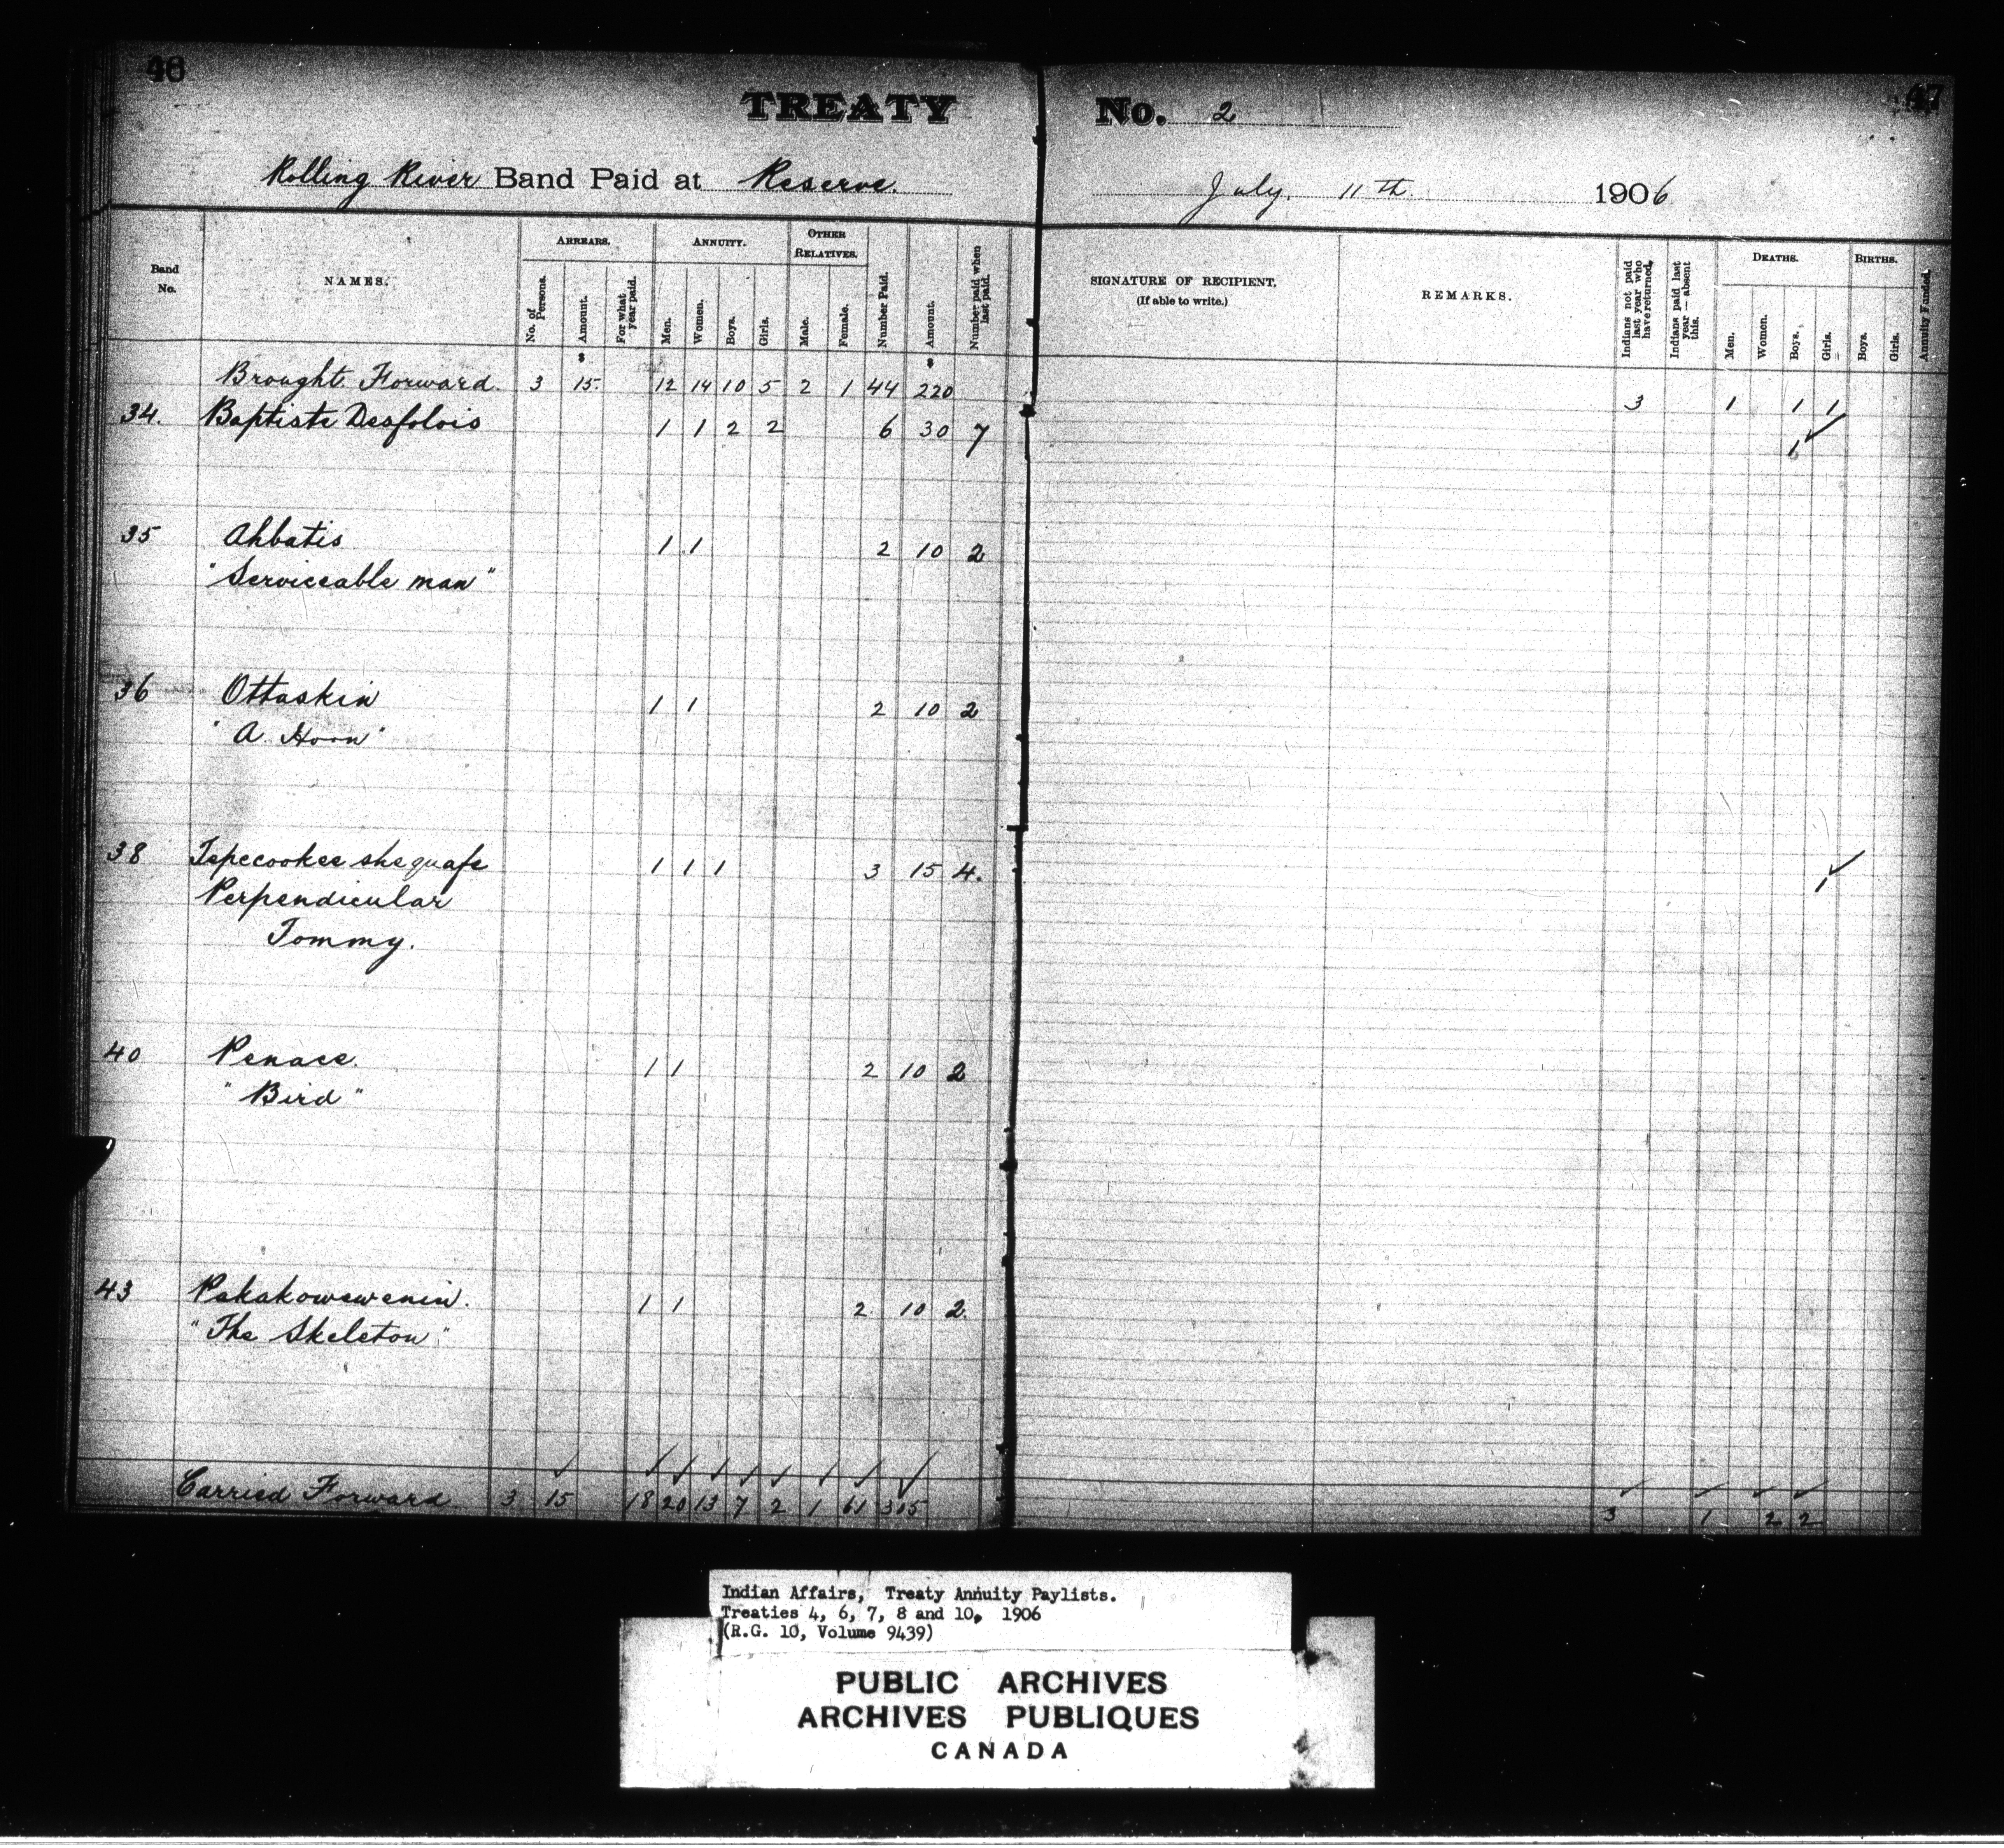 46
47
TREATY No. 2
Rolling River Band Paid at Reserve. July. 11th. 1906
Band No.
NAMES.
ARREARS.
No. of Persons.
Amount.
For what year paid.
ANNUITY.
Men.
Women.
Boys.
Girls.
OTHER RELATIVES.
Male.
Female.
Number Paid.
Amount.
Number paid when last paid.
SIGNATURE OF RECIPIENT.
(If able to write.)
REMARKS.
Indians not paid last year who have returned.
Indians paid last year — absent this.
DEATHS.
Men.
Women.
Boys.
Girls.
BIRTHS.
Boys.
Girls.
Annuity Funded.
$ $
Brought Forward. 3 15. 12 14 10 5 2 1 44 220 3 1 1 1
34. Baptiste Desfolois 1 1 2 2 6 30 7 1
35 Ahbatis 1 1 2 10 2
"Serviceable man"
36 Ottaskin 1 1 2 10 2
"A. Horn"
38 Tepecookee shequafe 1 1 1 3 15 4. 1
Perpendicular
Tommy.
40 Penace. 1 1 2 10 2
"Bird"
43 Pakakowewenin. 1 1 2 10 2.
"The Skeleton"
Carried Forward 3 15 18 20 13 7 2 1 61 305 3 1 2 2
Indian Affairs, Treaty Annuity Paylists.
Treaties 4, 6, 7, 8 and 10, 1906
(R.G. 10, Volume 9439)
PUBLIC ARCHIVES
ARCHIVES PUBLIQUES
CANADA